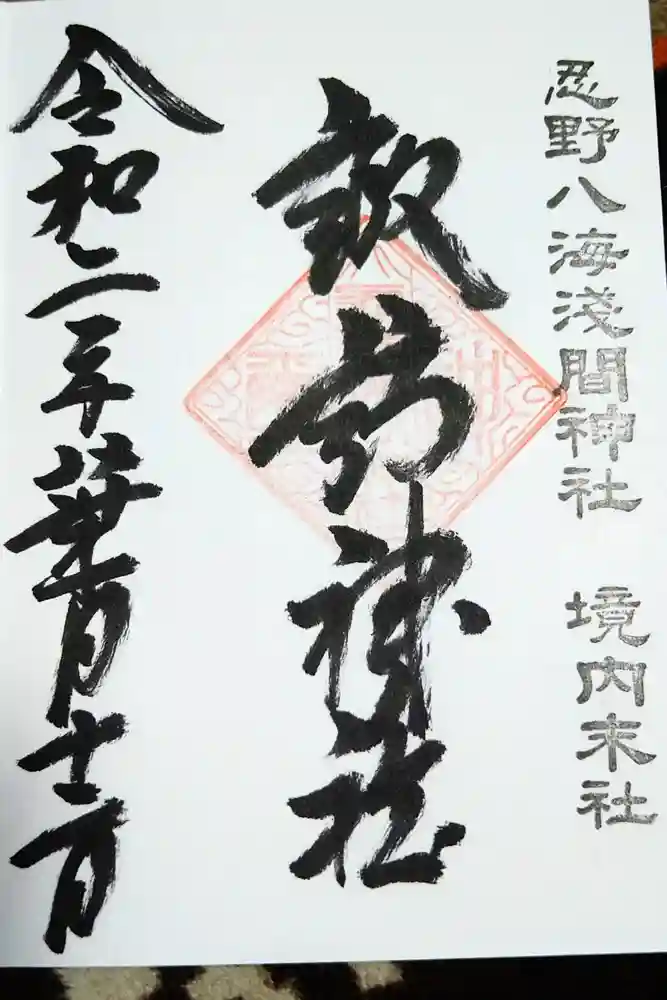 忍野八海淺間神社　境内末社
諏訪神社
令和二年葉月十二日